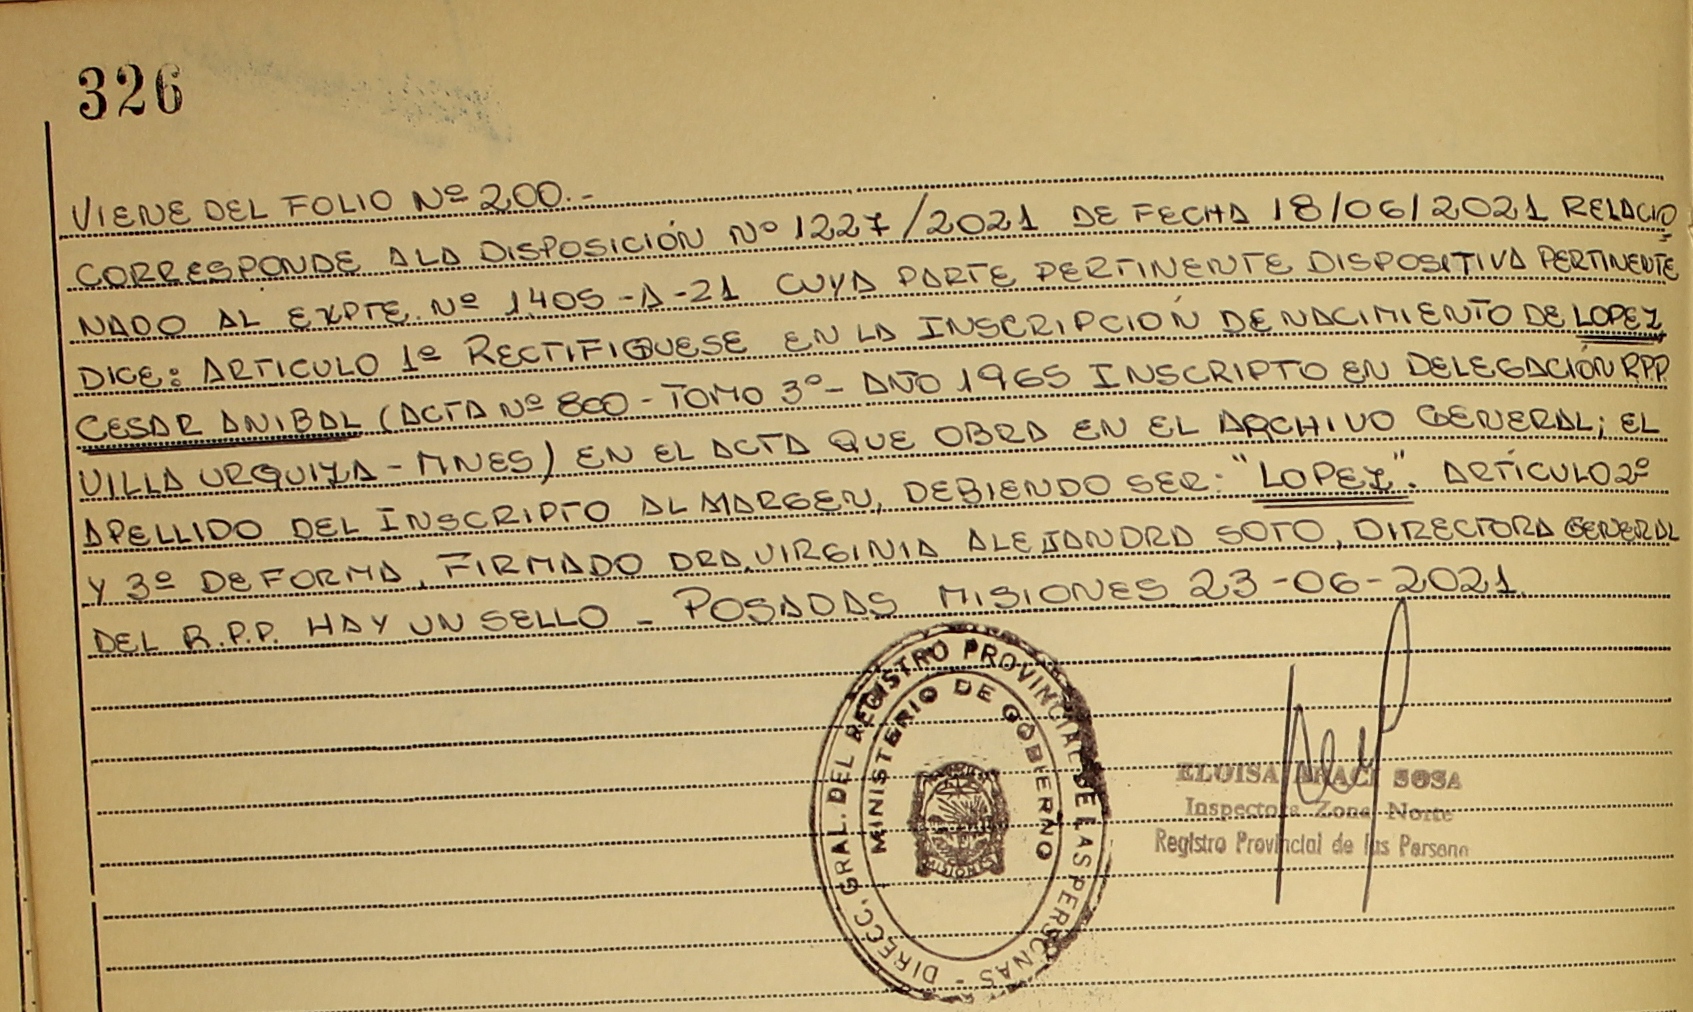 326
VIENE DEL FOLIO Nº 200.-
CORRESPONDE A LA DISPOSICIÓN Nº 1227/2021 DE FECHA 18/06/2021 RELACIO
NADO AL EXPTE. Nº 1405-A-21 CUYA PARTE PERTINENTE DISPOSITIVA PERTINENTE
DICE: ARTICULO 1º RECTIFIQUESE EN LA INSCRIPCIÓN DE NACIMIENTO DE LOPEZ
CESAR ANIBAL (ACTA Nº 800 - TOMO 3º - AÑO 1965 INSCRIPTO EN DELEGACIÓN RPP
VILLA URQUIZA - MNES) EN EL ACTA QUE OBRA EN EL ARCHIVO GENERAL; EL
APELLIDO DEL INSCRIPTO AL MARGEN, DEBIENDO SER: "LOPEZ". ARTÍCULO 2º
Y 3º DE FORMA. FIRMADO DRA. VIRGINIA ALEJANDRA SOTO, DIRECTORA GENERAL
DEL R.P.P. HAY UN SELLO - POSADAS MISIONES 23-06-2021.
DIRECC. GRAL. DEL REGISTRO PROVINCIAL DE LAS PERSONAS -
MINISTERIO DE GOBIERNO
MISIONES
ELUISA ARACI SOSA
Inspectora Zona Norte
Registro Provincial de las Persona